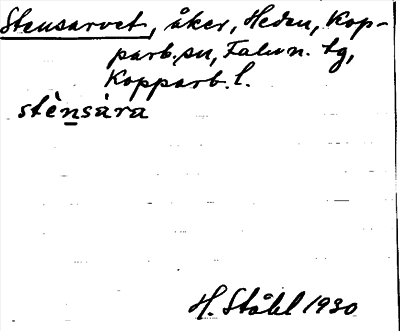 Stensarvet, åker, Heden, Kop-
parb. sn, Falun. tg,
Kopparb. l.
stènsàra
H. Ståhl 1930